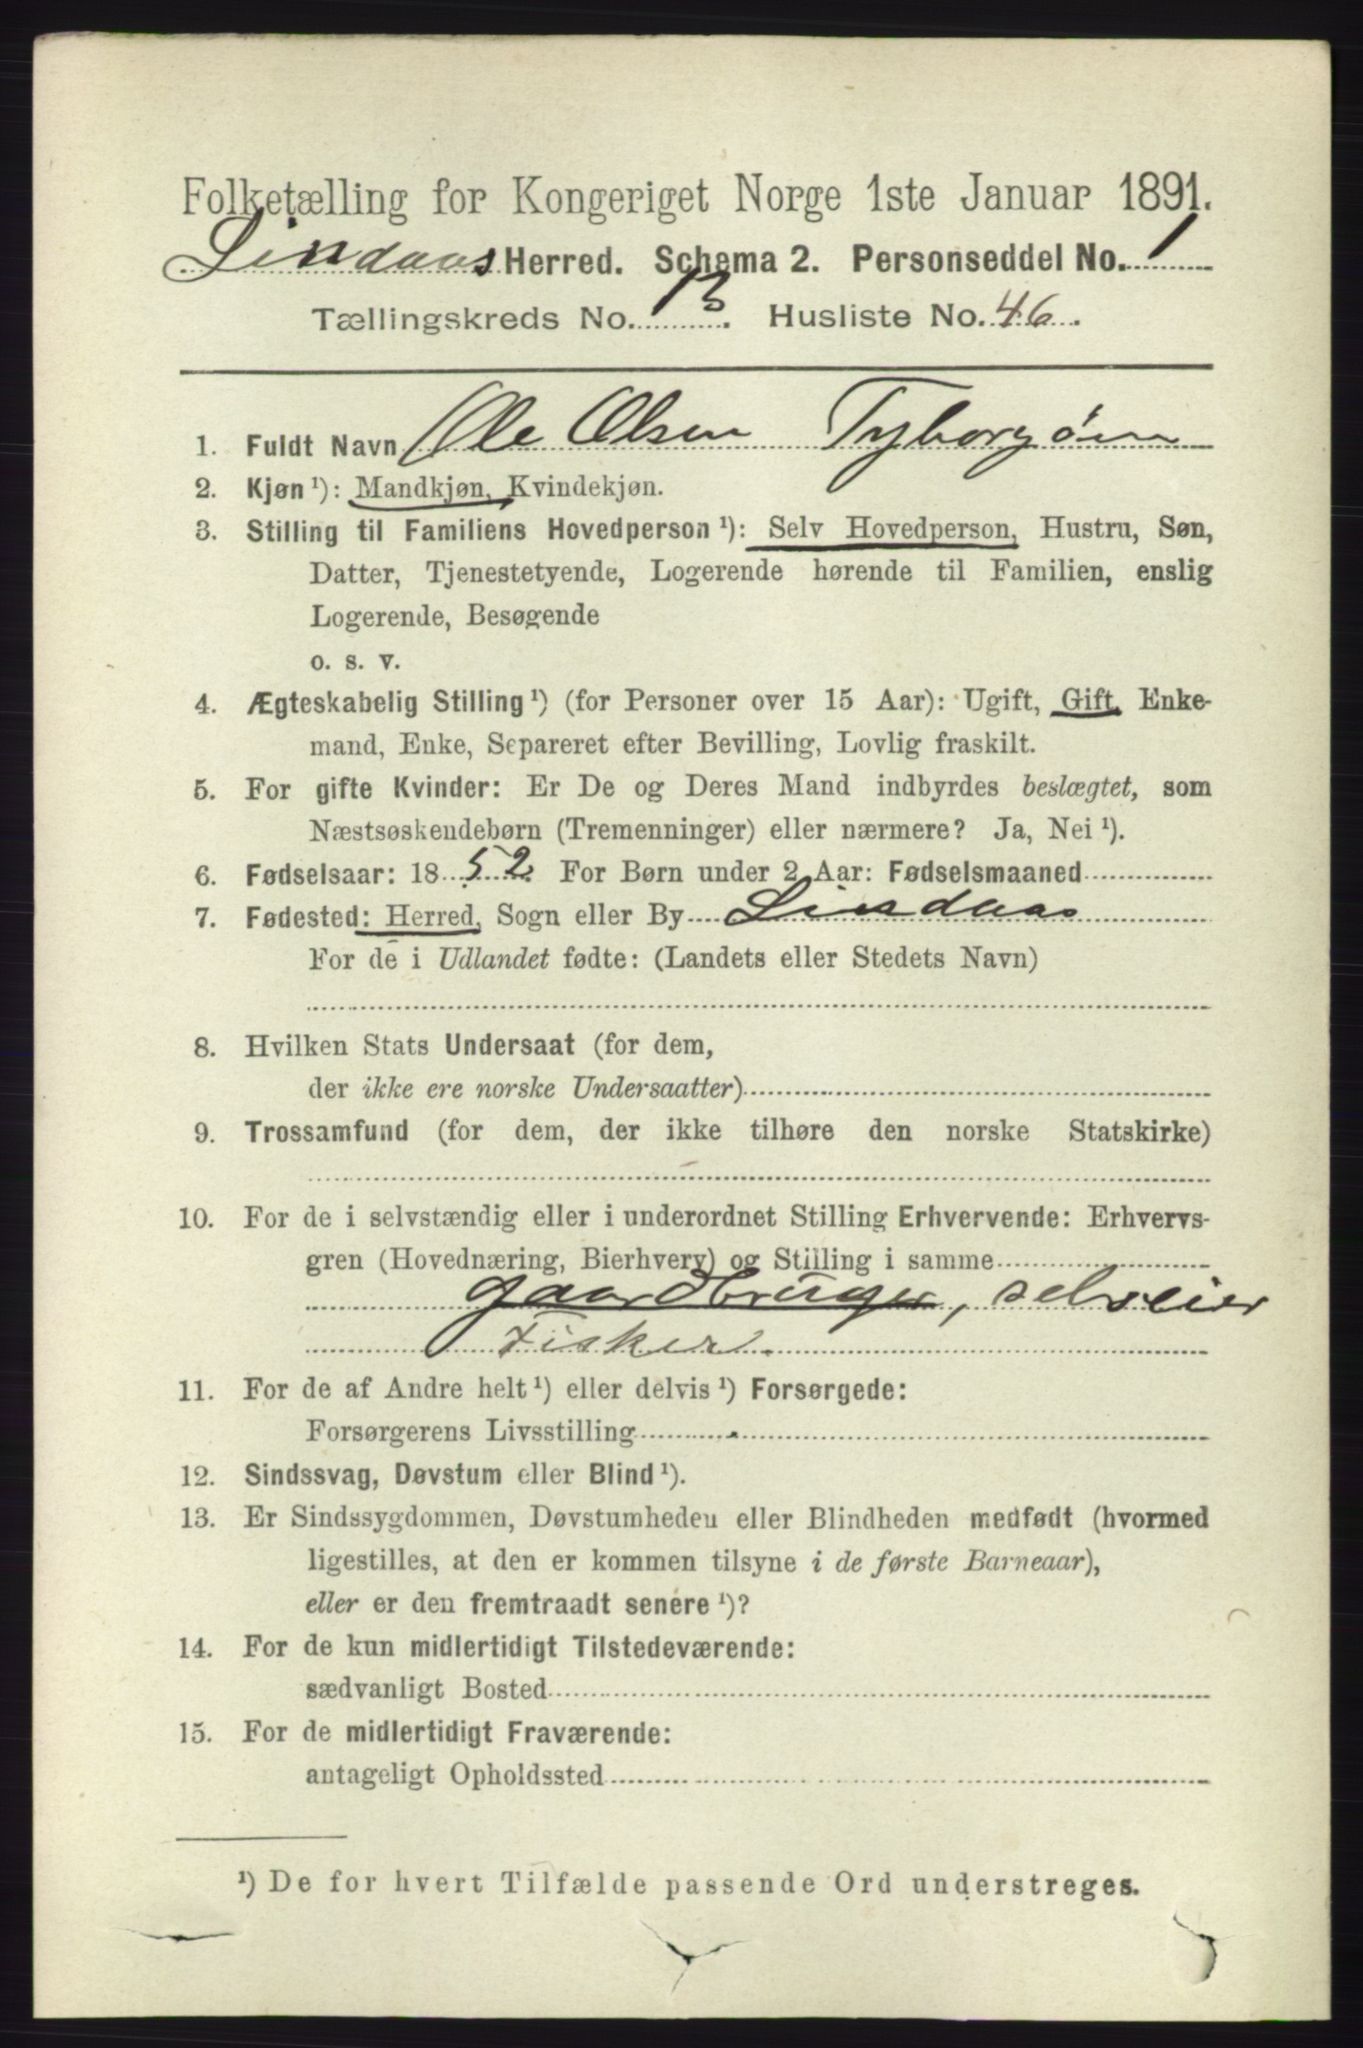 Folketælling for Kongeriget Norge 1ste Januar 1891.
Lindaas Herred. Schema 2. Personseddel No. 1
Tællingskreds No. 13. Husliste No. 46.
1. Fuldt Navn Ole Olsen
2. Kjøn ¹): Mandkjøn, Kvindekjøn.
3. Stilling til Familiens Hovedperson ¹): Selv Hovedperson, Hustru, Søn,
Datter, Tjenestetyende, Logerende hørende til Familien, enslig
Logerende, Besøgende
o. s. v.
4. Ægteskabelig Stilling ¹) (for Personer over 15 Aar): Ugift, Gift, Enke-
mand, Enke, Separeret efter Bevilling, Lovlig fraskilt.
5. For gifte Kvinder: Er De og Deres Mand indbyrdes beslægtet, som
Næstsøskendebørn (Tremenninger) eller nærmere? Ja, Nei ¹).
6. Fødselsaar: 1852 For Børn under 2 Aar: Fødselsmaaned
7. Fødested: Herred, Sogn eller By Lindaas
For de i Udlandet fødte: (Landets eller Stedets Navn)
8. Hvilken Stats Undersaat (for dem,
der ikke ere norske Undersaatter)
9. Trossamfund (for dem, der ikke tilhøre den norske Statskirke)
10. For de i selvstændig eller i underordnet Stilling Erhvervende: Erhvervs-
gren (Hovednæring, Bierhverv) og Stilling i samme
gaardbruger, selveier
Fisker.
11. For de af Andre helt ¹) eller delvis ¹) Forsørgede:
Forsørgerens Livsstilling
12. Sindssvag, Døvstum eller Blind ¹).
13. Er Sindssygdommen, Døvstumheden eller Blindheden medfødt (hvormed
ligestilles, at den er kommen tilsyne i de første Barneaar),
eller er den fremtraadt senere ¹)?
14. For de kun midlertidigt Tilstedeværende:
sædvanligt Bosted
15. For de midlertidigt Fraværende:
antageligt Opholdssted
¹) De for hvert Tilfælde passende Ord understreges.